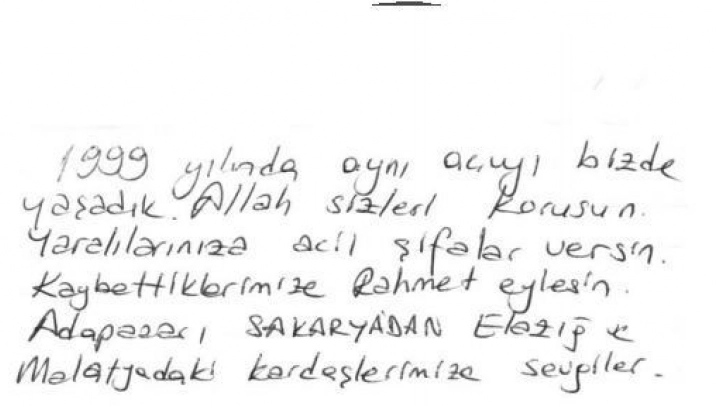 1999 yılında aynı acıyı bizde
yaşadık. Allah sizleri korusun.
Yaralılarınıza acil şifalar versin.
Kaybettiklerimize Rahmet eylesin.
Adapazarı SAKARYADAN Elazığ ve
Malatyadaki kardeşlerimize sevgiler.